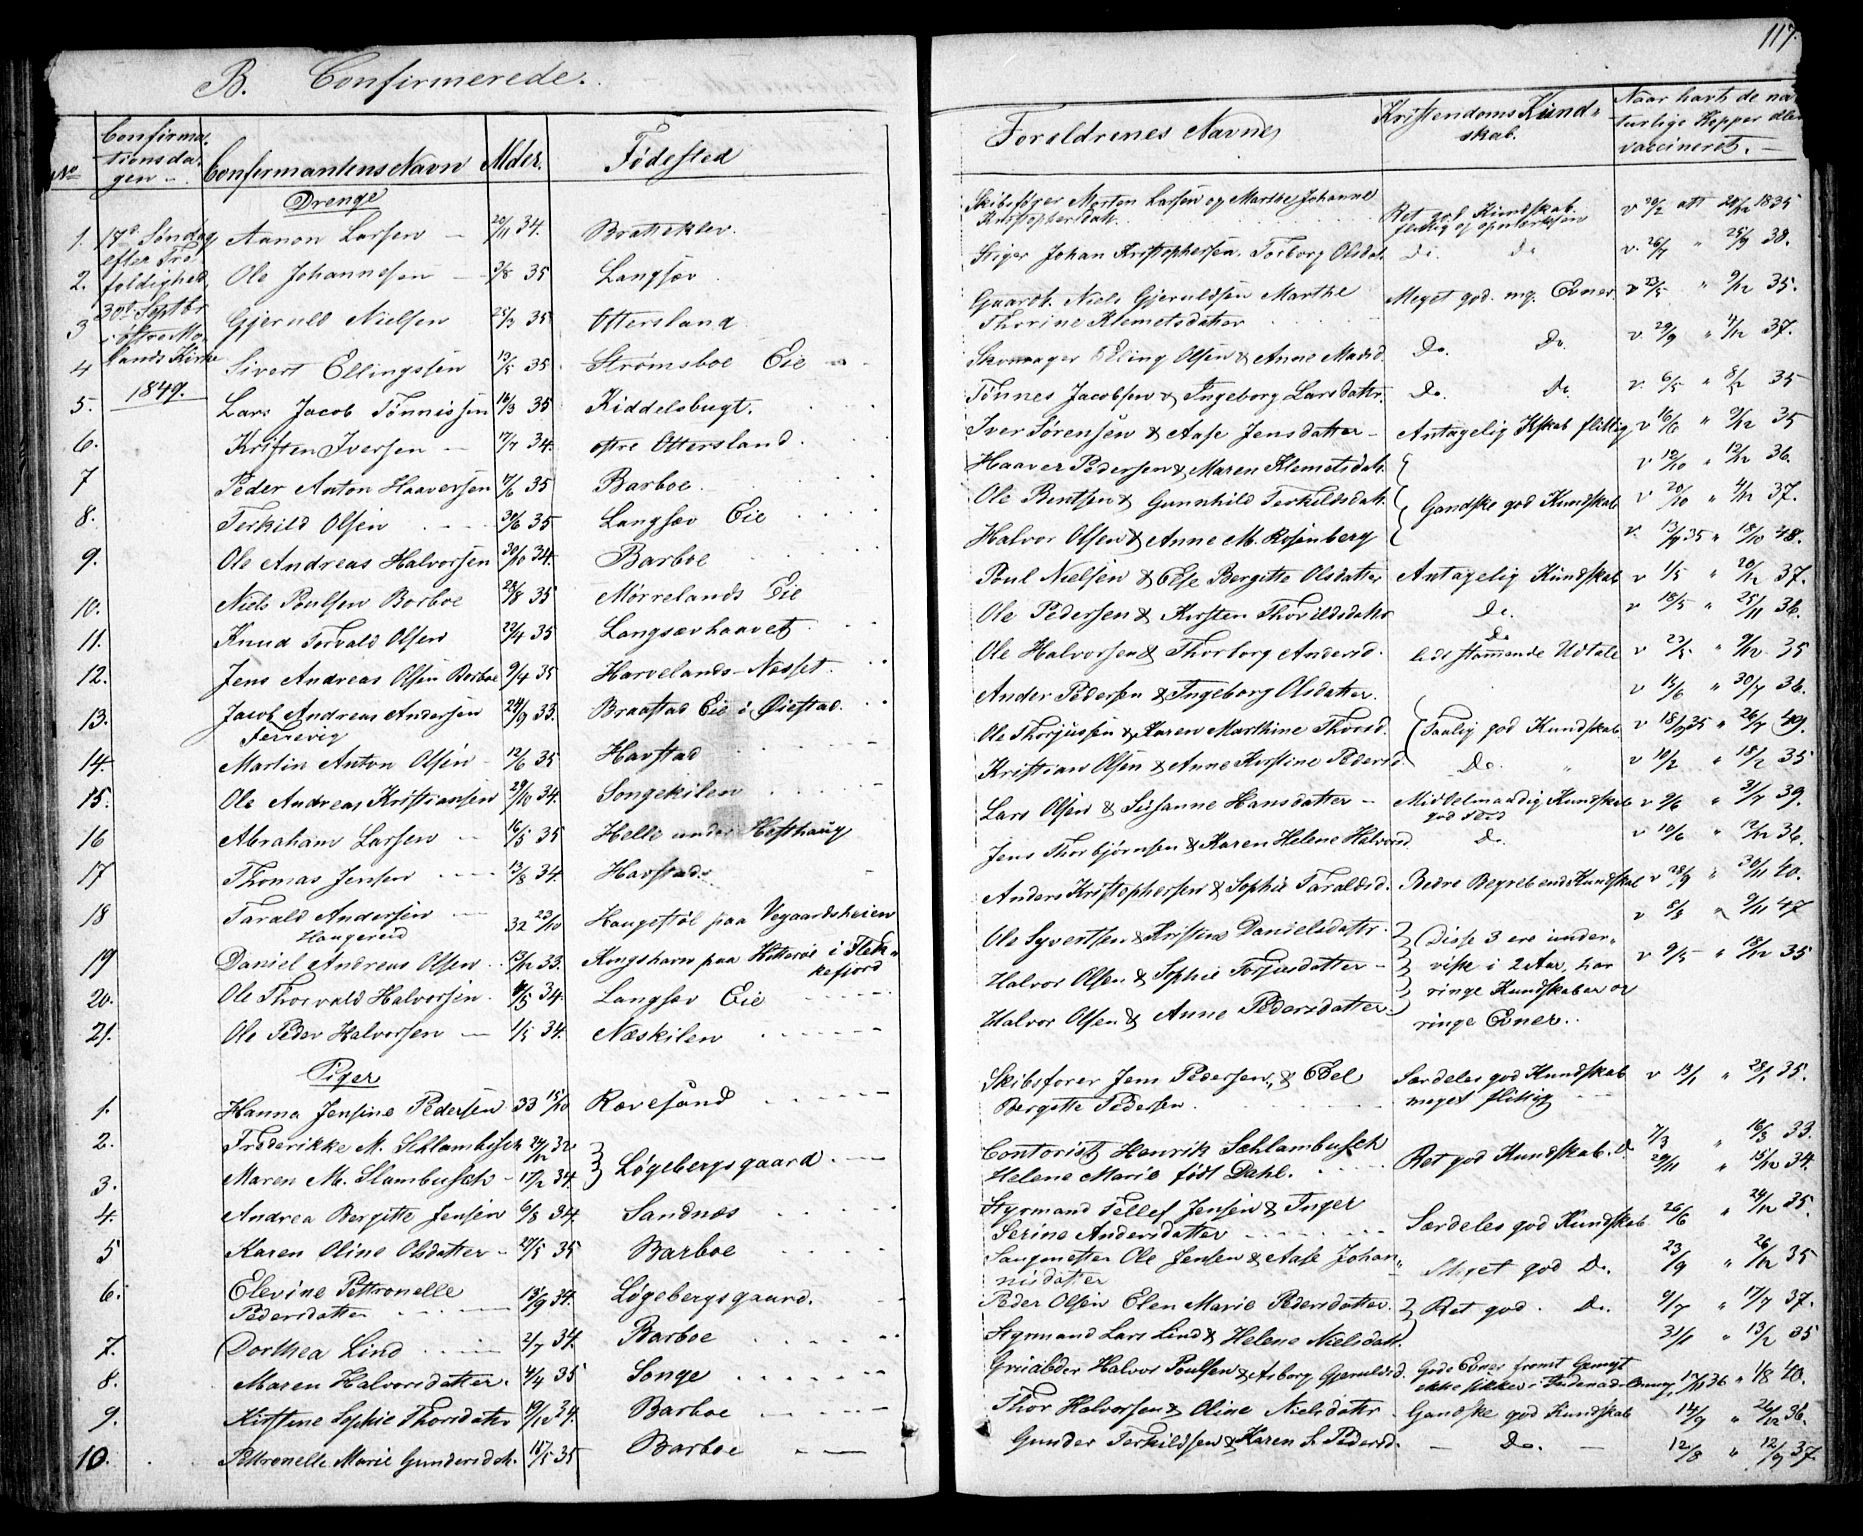 117.
B. Confirmerede.
No
Confirma-
tionsda-
gen
Confirmantens Navn
Alder.
Fødested
Forældrenes Navne
Kristendoms Kund-
skab.
Naar havt de na-
turlige Kopper eller
vaccineret.
Drenge
17de Søndag
efter Tre-
foldighed,
30t Septbr
i østre Mo-
lands Kirke
1849.
1. Aanon Larsen 20/11 34. Bratteklev. Skibsfører Morten Larsen og Marthe Johanne
Kristophersdatt. Ret god Kundskab
flittig og opmærksom v 20/2 att 20/12 1835
2. Ole Johannesen 3/8 35 Langsæv. Stiger Johan Kristophersen, Torborg Olsdat. do. do v. 26/7 " 25/9 38.
3 Gjeruld Nielsen 25/3 35 Ottersland Gaardb. Niels Gjeruldsen Marthe
Thorine Klemetsdatter Meget god. mg. Evner. v 23/5 " 9/12 35.
4 Sivert Ellingssen 13/5 35 Strømsboe Eie Skomager Elling Olsen & Anne Madsd. Do. Do. v 29/9 " 4/12 37.
5. Lars Jacob Tønnissen 16/3 35 Kiddelsbugt. Tønnes Jacobsen & Ingeborg Larsdatter. Do. Do. v. 6/5 " 8/12 35
6. Kristen Iversen 17/7 34. østre Ottersland. Iver Sørensen & Aase Jensdatter Antagelig Kskab flittig v 16/6 " 9/12 35
7 Peder Anton Haaversen 17/6 35 Barboe Haaver Pedersen & Maren Klemetsdat. v 12/10 " 12/12 36.
8. Terkild Olsen 30/6 35 Langsæv Eie Ole Bentsen & Gunnhild Terkildsdatt. Gandske god Kundskab v 20/10 " 4/12 37.
9. Ole Andreas Halvorsen 30/10 34. Barboe Halvor Olsen & Anne M. Rosenberg v. 13/9 35 " 18/10 48.
10. Niels Poulsen Borboe 28/8 35 Mørrelands Eie Poul Nielsen & Else Bergitte Olsdatter Antagelig Kundskab v 1/5 " 20/12 37.
11. Knud Torvald Olsen 22/4 35 Langsævhaavet Ole Pedersen & Kirsten Thorildsdatter Do. v 18/5 " 25/11 36.
12. Jens Andreas Olsen Borboe 9/4 35 Harvelands-Nesset. Ole Halvorsen & Thorborg Andersd. Do
lidt stammende Udtale v 23/5 " 9/12 35
13. Jacob Andreas Andersen
Ferrevig 24/9 33. Braastad Eie i Øiestad. Ander Pedersen & Ingeborg Olsdatter. v 15/6 " 30/7 36.
14. Martin Anton Olsen 12/6 35 Havstad Ole Thorjussen & Karen Marthine Thorsd. Taalig god Kundskab v 18/9 35 " 26/7 49.
15. Ole Andreas Kristiansen 29/10 34. Songekilen Kristian Olsen & Anne Kirstine Pedersd. Do. " v 10/2 " 18/2 35
16 Abraham Larsen 16/5 35 Helle under Hesthaug Lars Olsen & Susanne Hansdatter Middelmaadig Kundskab
god Flid v 9/6 " 31/7 39.
17 Thomas Jensen 13/8 34. Havstad Jens Thorbjørnsen & Karen Helene Halvorsd Do. v 10/6 " 12/12 36.
18 Tarald Andersen
Haugereid 32 23/10 Haugestøl paa Vegaardsheien Anders Kristophersen & Sophie Taraldsd. Bedre Begreb end Kundskab v 28/9 " 30/11 40.
19 Daniel Andreas Olsen 13/12 33. Kongshavn paa Hitterøe i Flek-
kefjord Ole Syvertsen & Kristine Danielsdatter. Disse 3 ere under-
viste i 2 Aar, har
ringe Kundskaber og
ringe Evner. v 8/8 " 9/11 47
20. Ole Thorvald Halvorsen. 4/5 34. Langsæv Eie Halvor Olsen & Sophie Torjusdatter v 9/5 " 18/12 35
21. Ole Peder Halvorsen 1/5 34. Næskilen Halvor Olsen & Anne Pedersdatter.
Piger
1. Hanna Jensine Pedersen 33 15/10 Rævesund Skibsfører Jens Pedersen, & Edel
Bergitte Pedersen Særdeles god Kundskab
meget flittig v 13/1 " 28/1 35.
2. Frederikke M. Schlambusch 24/12 32 Løgebergsgaard. Contorist Henrik Schlambusch
Helene Marie født Dahl. Ret god Kundskab. D 7/3 " 16/3 33.
3. Maren M. Slambusch 17/2 34. 29/11 " 15/12 34.
4. Andrea Bergitte Jensen 6/8 34. Sandnæs Styrmand Tellef Jensen & Inger
Serine Andersdatter Særdeles god Kundskab 26/6 " 24/12 35.
5 Karen Oline Olsdatter 27/5 35 Barboe Saugmester Ole Jensen & Aase Johan-
nisdatter Meget god Do. 23/9 " 26/12 35
6. Elevine Pettronelle
Pedersdatter 18/9 34. Løgebergsgaard. Peder Olsen Elen Marie Pedersdatter. Ret god. Do. 9/7 " 17/7 37.
7. Dorthea Lind 2/7 34. Barboe Styrmand Lars Lind & Helene Nielsdatt. 31/1 " 13/2 35
8. Maren Halvorsdatter. 4/4 35 Songe Halvor Poulsen & Asborg Gjeruldsd. Gode Evner fromt Gemyt
ikke sikker i Indenadslæsning, 12/10 36 " 1/8 40.
9. Kirstine Sophie Thorsdatter 19/12 34. Barboe Thor Halvorsen & Oline Nielsdatter Gandske god Kundskab 14/9 " 26/12 36.
10. Pettronelle Marie Gundersdatt. 18/5 35 Barboe Gunder Terkildsen & Karen S. Pedersd. Do. 12/8 " 12/9 37.